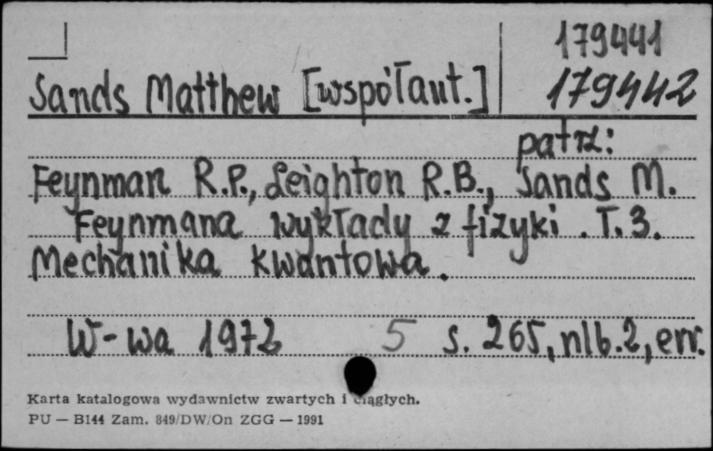 179441
Sands Matthew [współaut.] 179442
patrz:
Feynman R.P., Leighton R.B., Sands M.
Feynmana wykłady z fizyki. T.3.
Mechanika kwantowa.
W-wa 1972 5 s. 265, nlb. 2, err.
Karta katalogowa wydawnictw zwartych i ciągłych.
PU — B144 Zam. 849/DW/On ZGG — 1991